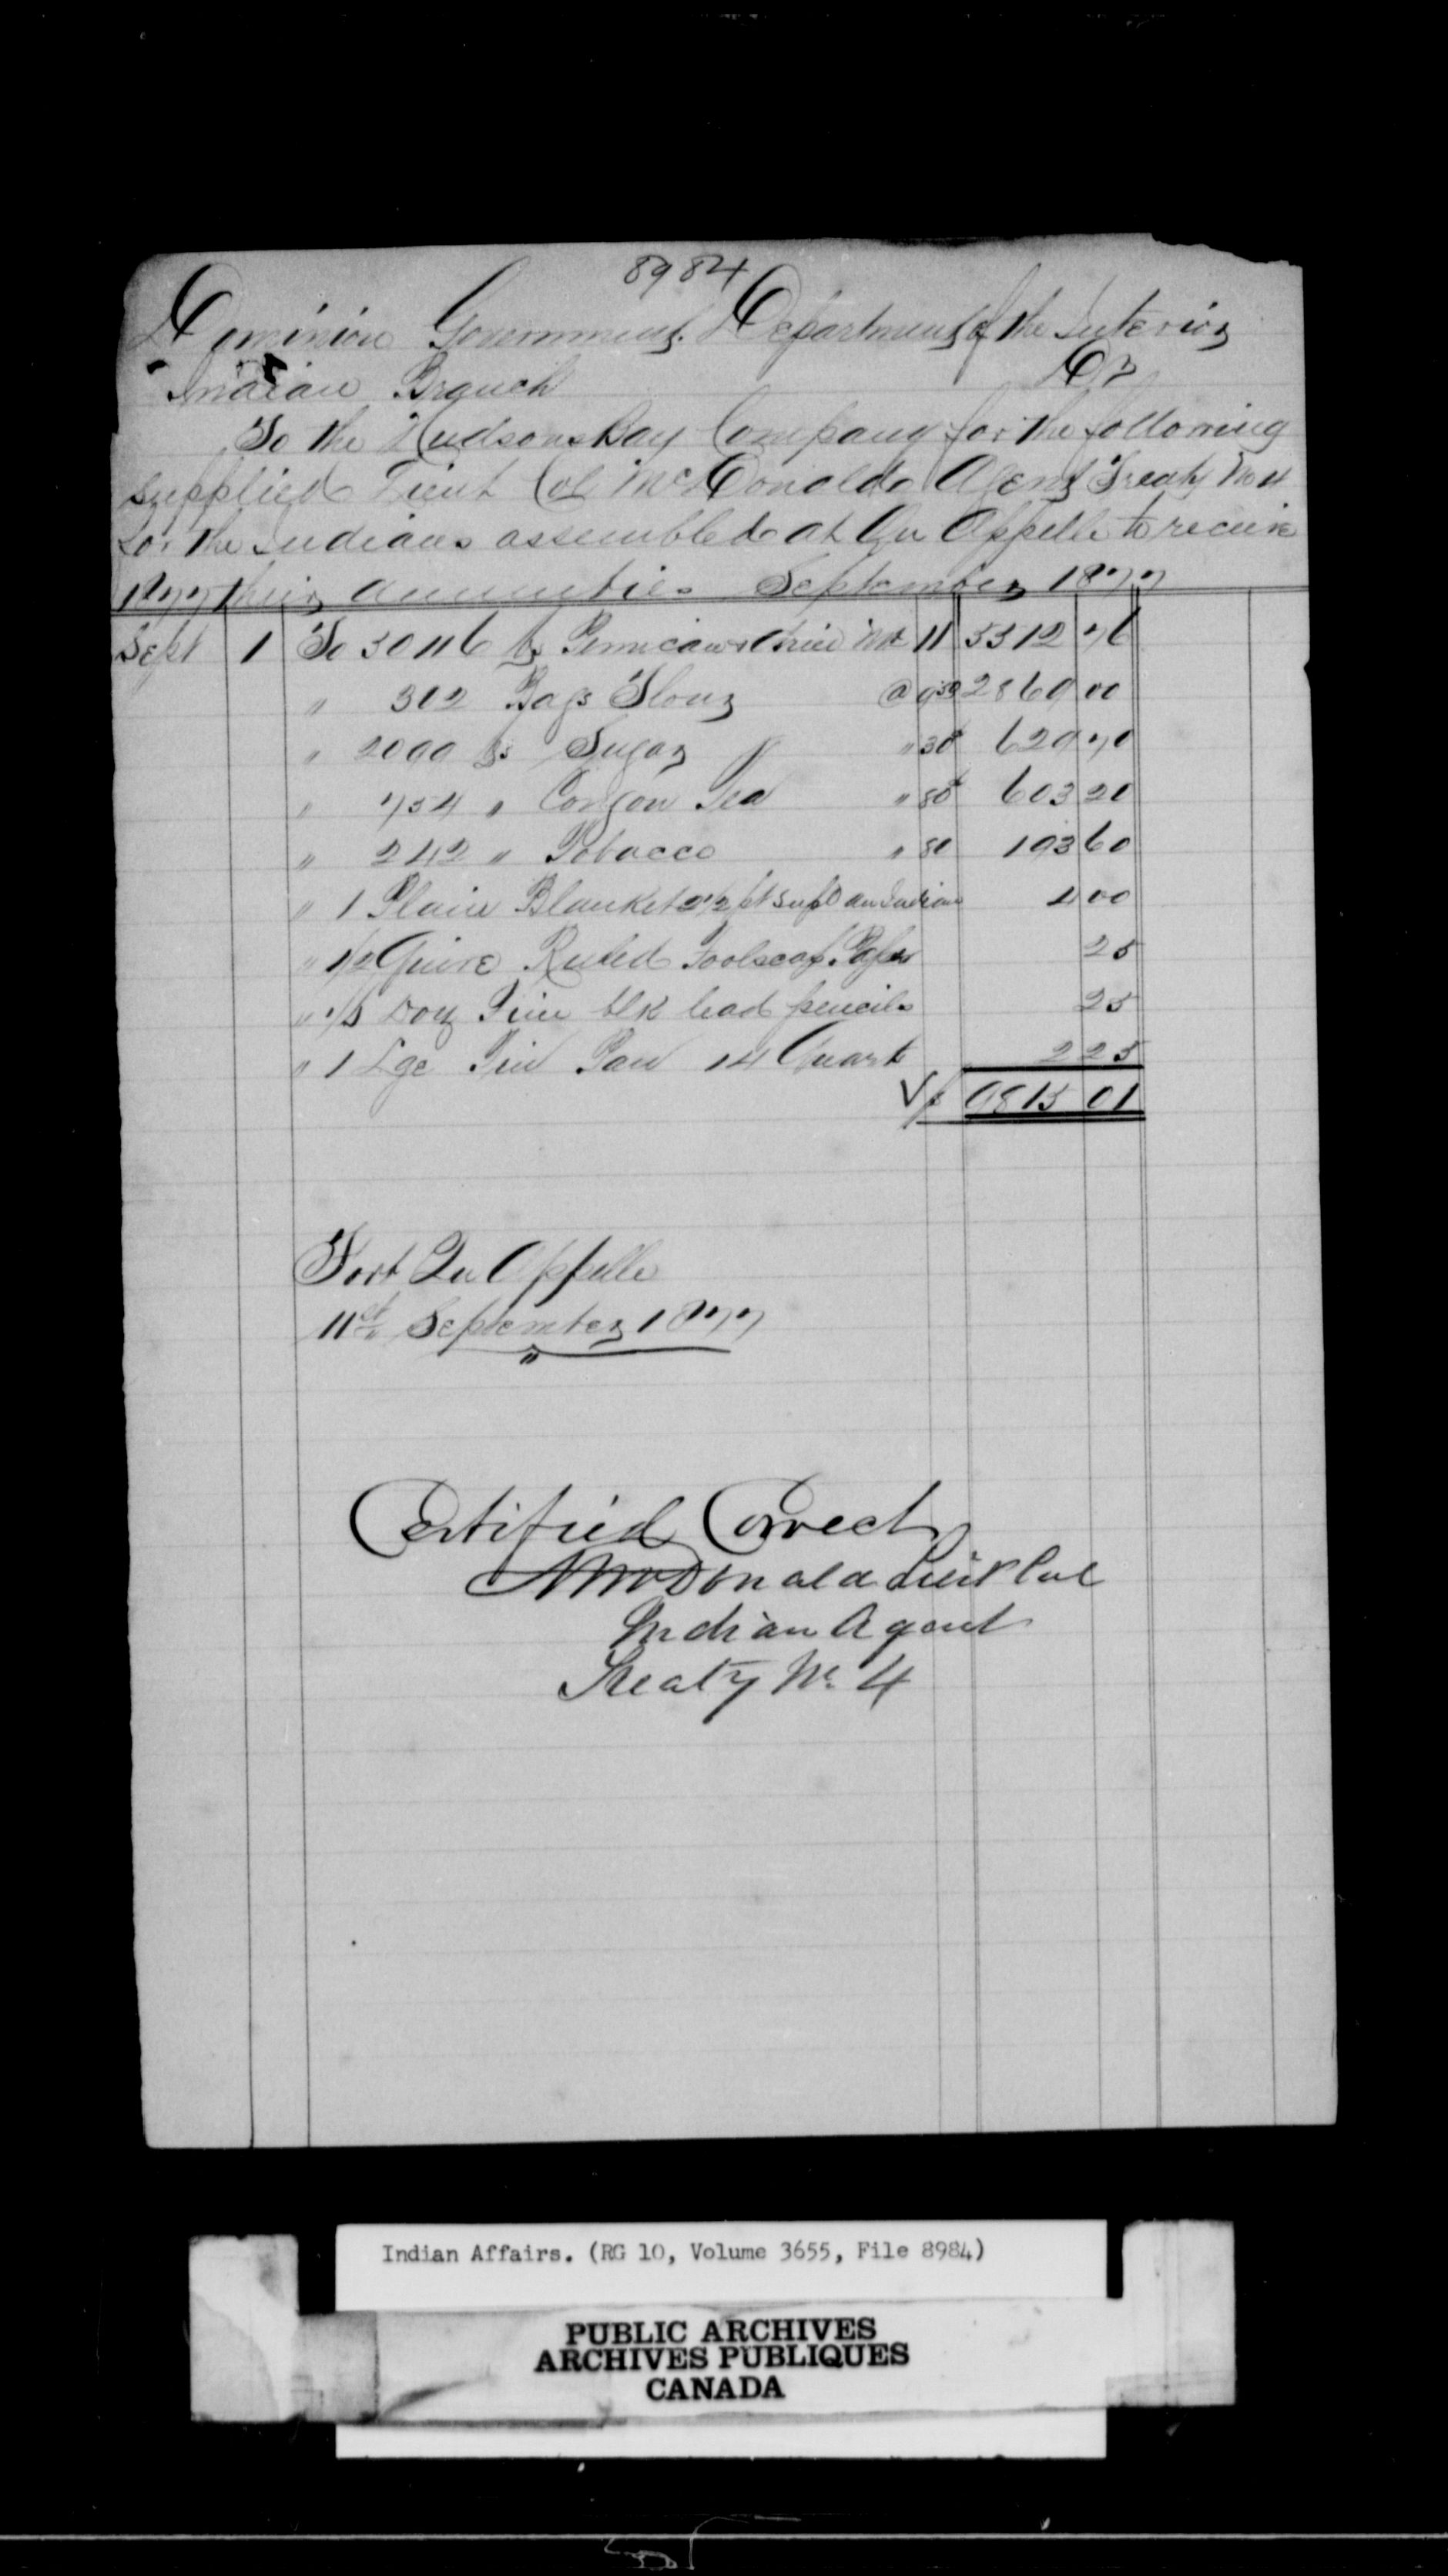 8984
Dominion Government. Department of the Interior
Indian Branch Dr
To the Hudsons Bay Company for the following
supplied Lieut Col McDonald Agent Treaty No 4
for the Indians assembled at Qu Appelle to receive
1877 their annuities September 1877
Sept 1 To 50116 lbs Pemican & Dried Mt 11 5512 76
" 302 Bags Flour @ 9 50 2869 00
" 2099 lbs Sugar " 30 629 70
" 754 " Congou Tea " 80 603 20
" 242 " Tobacco " 80 193 60
" 1 Plain Blanket 2½ pt supd an Indian 4 00
" 1/2 Quire Ruled Foolscap Paper 25
" 1/3 Doz Fine blk lead pencils 25
" 1 Lge Tin Pan 14 Quart 2 25
√ $ 9815 01
Fort Qu Appelle
11th September 1877
Certified Correct
A McDonald Lieut Col
Indian Agent
Treaty No. 4
Indian Affairs. (RG 10, Volume 3655, File 8984)
PUBLIC ARCHIVES
ARCHIVES PUBLIQUES
CANADA